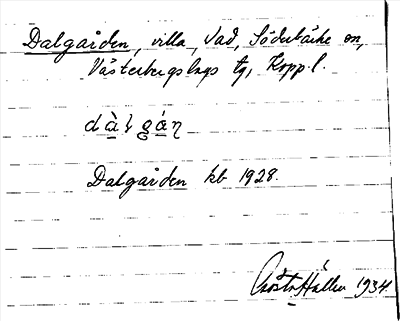 Dalgården, villa, Vad, Söderbärke sn,
Västerbergslags tg, Kopp. l.
dàlgá̱ṇ
Dalgården kb 1928.
Gösta Hallén 1934.